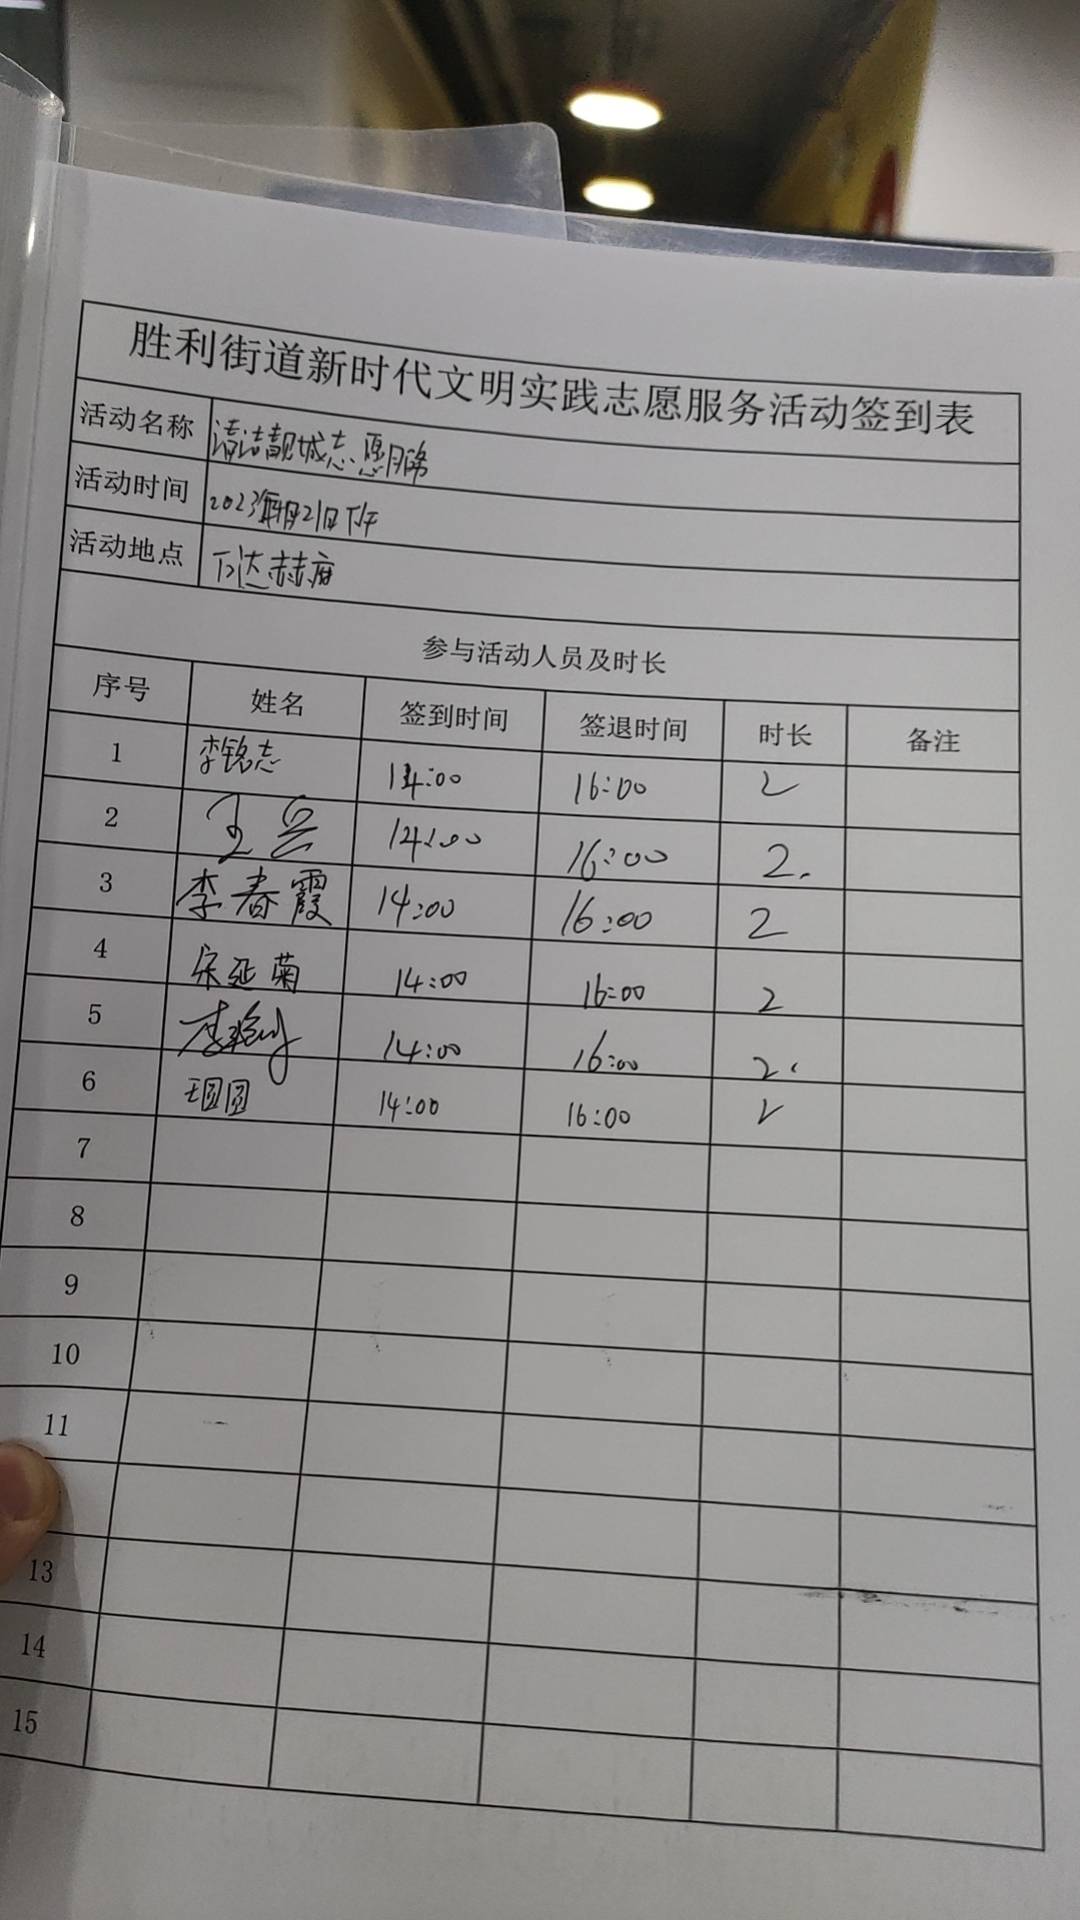 胜利街道新时代文明实践志愿服务活动签到表
活动名称 清洁靓城志愿服务
活动时间 2023年 月21日下午
活动地点 万达 府
参与活动人员及时长
序号 姓名 签到时间 签退时间 时长 备注
1 李铭志 14:00 16:00 2
2 王兵 14:00 16:00 2.
3 李春霞 14:00 16:00 2
4 宋延菊 14:00 16:00 2
5 李 14:00 16:00 2.
6 王圆圆 14:00 16:00 2
7
8
9
10
11
13
14
15